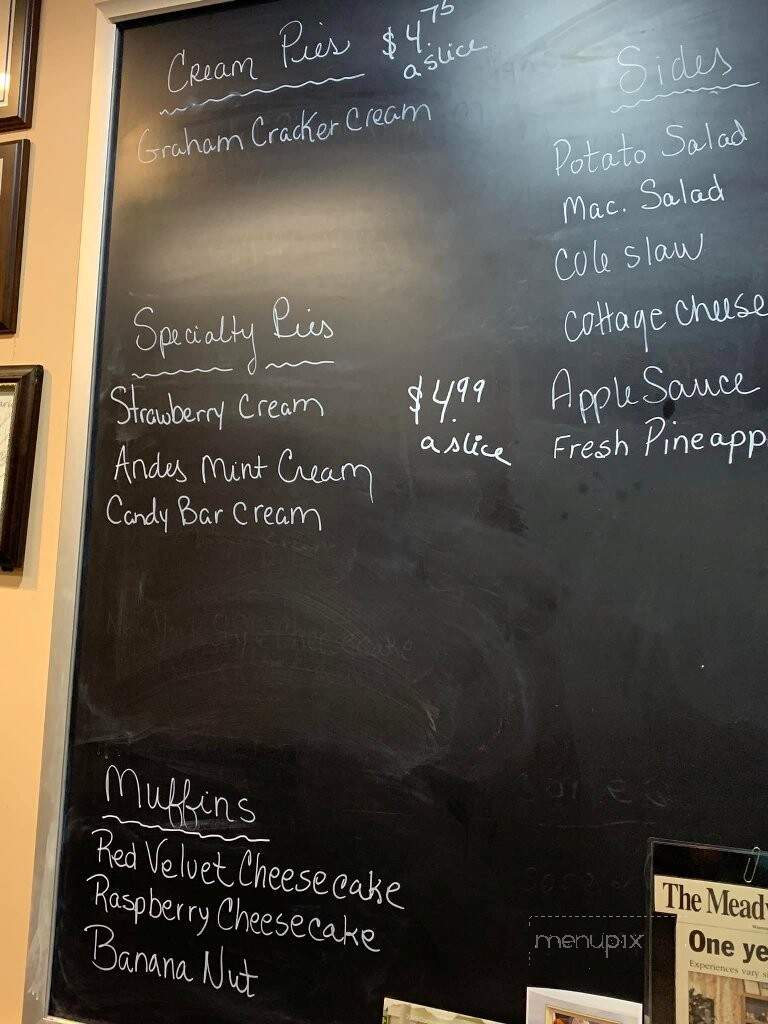 Cream Pies $4.75
a slice
Graham Cracker Cream
Specialty Pies
Strawberry Cream $4.99
a slice
Andes Mint Cream
Candy Bar Cream
Muffins
Red Velvet Cheesecake
Raspberry Cheesecake
Banana Nut
Sides
Potato Salad
Mac. Salad
Cole slaw
Cottage Cheese
Apple Sauce
Fresh Pineapp
The Mead
One ye
Experiences vary
menupix